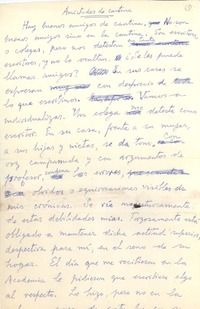 Amistades de cantina
Hay buenos amigos de cantina, No son
buenos amigos sino en la cantina. Son escritores,
o colegas, pero nos detestan
escritores, y no lo ocultan. ¿Se les puede
llamar amigos? En sus casas se
expresan con desprecio de
lo que escribimos. Vamos a
individualizar. Un colega me detesta como
escritor. En su casa, frente a su mujer,
a sus hijas y nietas, se da tono, con
voz campanuda y con argumentos de
profesor, los errores,
olvidos o equivocaciones visibles de
mis crónicas. Yo río
de estas debilidades mías. Forzosamente está
obligado a mantener dicha actitud superior,
despectiva para mí, en el seno de su
hogar. El día que me recibieron en la
Academia le pidieron que escribiera algo
al respecto. Lo hizo, pero no en la